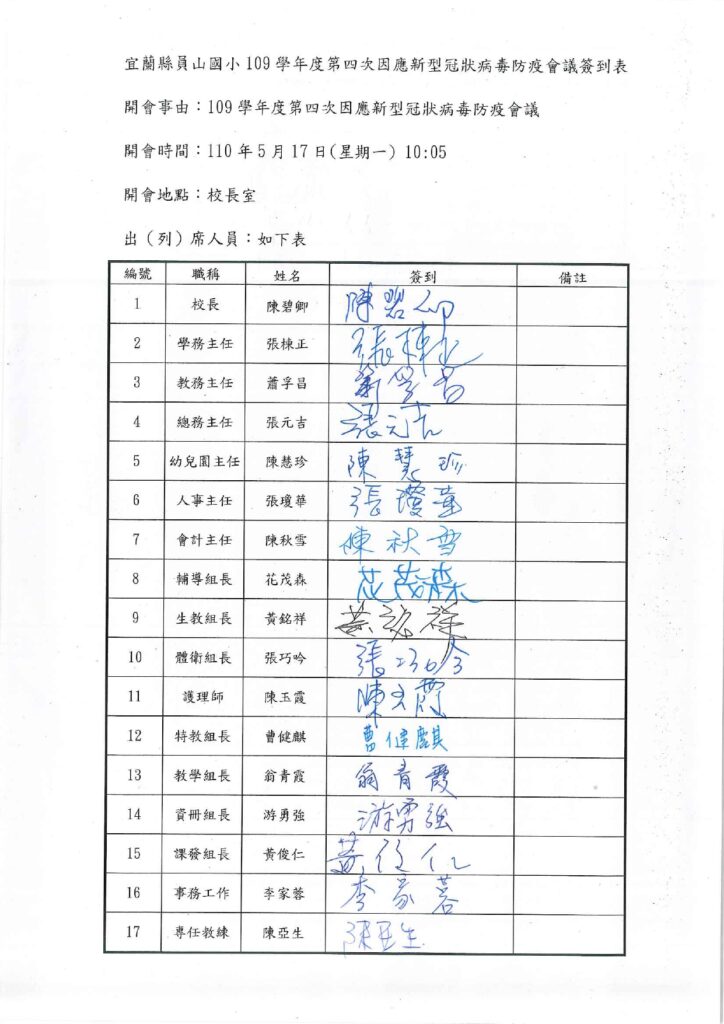 宜蘭縣員山國小 109 學年度第四次因應新型冠狀病毒防疫會議簽到表
開會事由：109 學年度第四次因應新型冠狀病毒防疫會議
開會時間：110 年 5 月 17 日(星期一) 10:05
開會地點：校長室
出（列）席人員：如下表
編號 職稱 姓名 簽到 備註
1 校長 陳碧卿 陳碧卿
2 學務主任 張棟正 張棟正
3 教務主任 蕭孚昌 蕭孚昌
4 總務主任 張元吉 張元吉
5 幼兒園主任 陳慧珍 陳慧珍
6 人事主任 張瓊華 張瓊華
7 會計主任 陳秋雪 陳秋雪
8 輔導組長 花茂森 花茂森
9 生教組長 黃銘祥 黃銘祥
10 體衛組長 張巧吟 張巧吟
11 護理師 陳玉霞 陳玉霞
12 特教組長 曹健麒 曹健麒
13 教學組長 翁青霞 翁青霞
14 資冊組長 游勇強 游勇強
15 課發組長 黃俊仁 黃俊仁
16 事務工作 李家蓉 李家蓉
17 專任教練 陳亞生 陳亞生